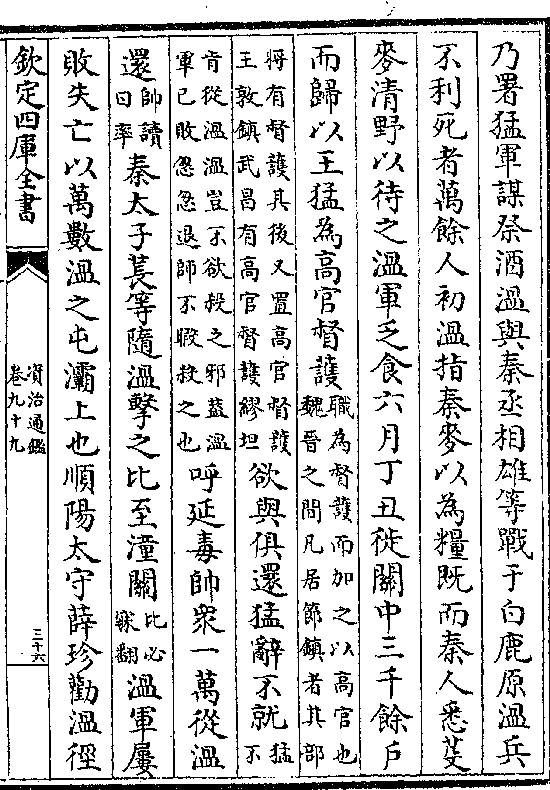 乃署猛軍謀祭酒溫與秦丞相雄等戰于白鹿原溫兵
不利死者萬餘人初溫指秦麥以為糧既而秦人悉芟
麥清野以待之溫軍乏食六月丁丑徙關中三千餘戶
而歸以王猛為高官督護職為督護而加之以高官也魏晉之間凡居節鎮者其部
將有督護其後又置高官督護王敦鎮武昌有高官督護繆坦欲與俱還猛辭不就猛不
肯從溫溫豈不欲殺之邪蓋溫軍已敗怱怱退師不暇殺之也呼延毒帥衆一萬從溫
還帥讀曰率秦太子萇等隨溫擊之比至潼關比必寐翻溫軍屢
敗失亡以萬數溫之屯灞上也順陽太守薛珍勸溫徑
欽定四庫全書
資治通鑑
卷九十九
三十六